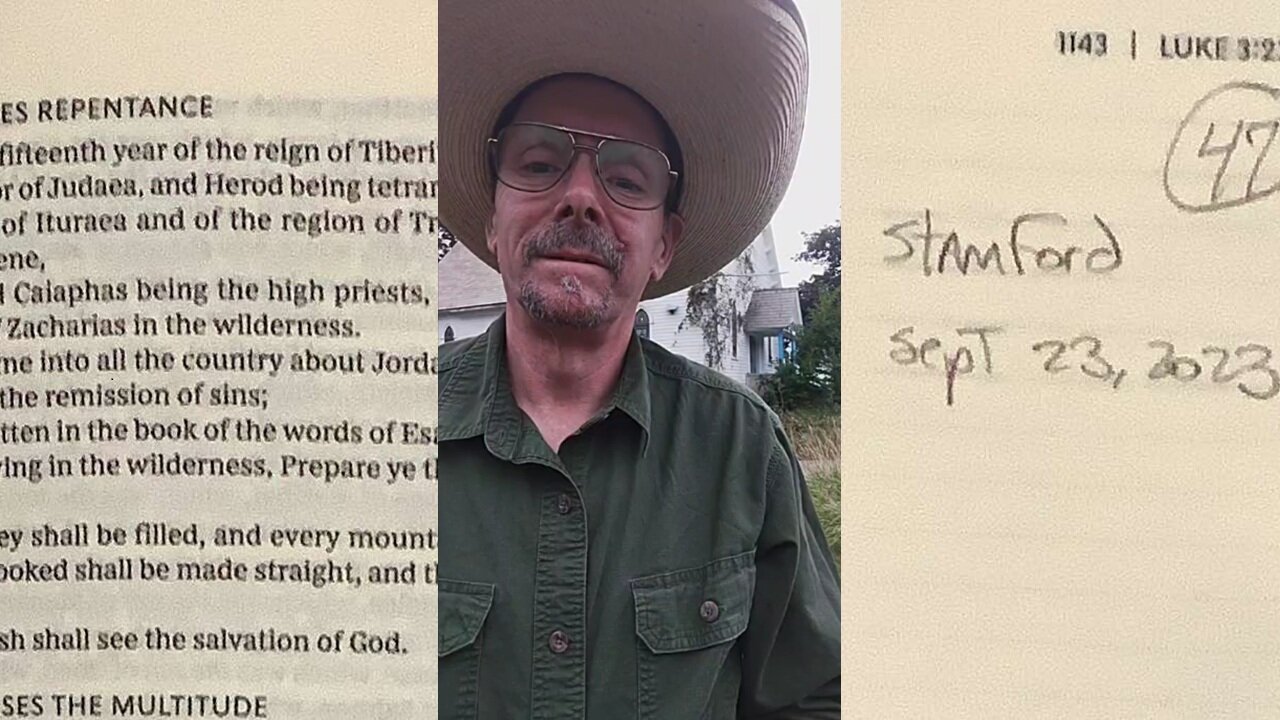 ES REPENTANCE
fifteenth year of the reign of Tiberi
r of Judaea, and Herod being tetrar
of Ituraea and of the region of Tr
ene,
Caiaphas being the high priests,
Zacharias in the wilderness.
me into all the country about Jorda
the remission of sins;
tten in the book of the words of Esa
ing in the wilderness, Prepare ye t
ey shall be filled, and every mount
ooked shall be made straight, and t
sh shall see the salvation of God.
SES THE MULTITUDE
1143 | LUKE 3:2
47
Stamford
Sept 23, 2023